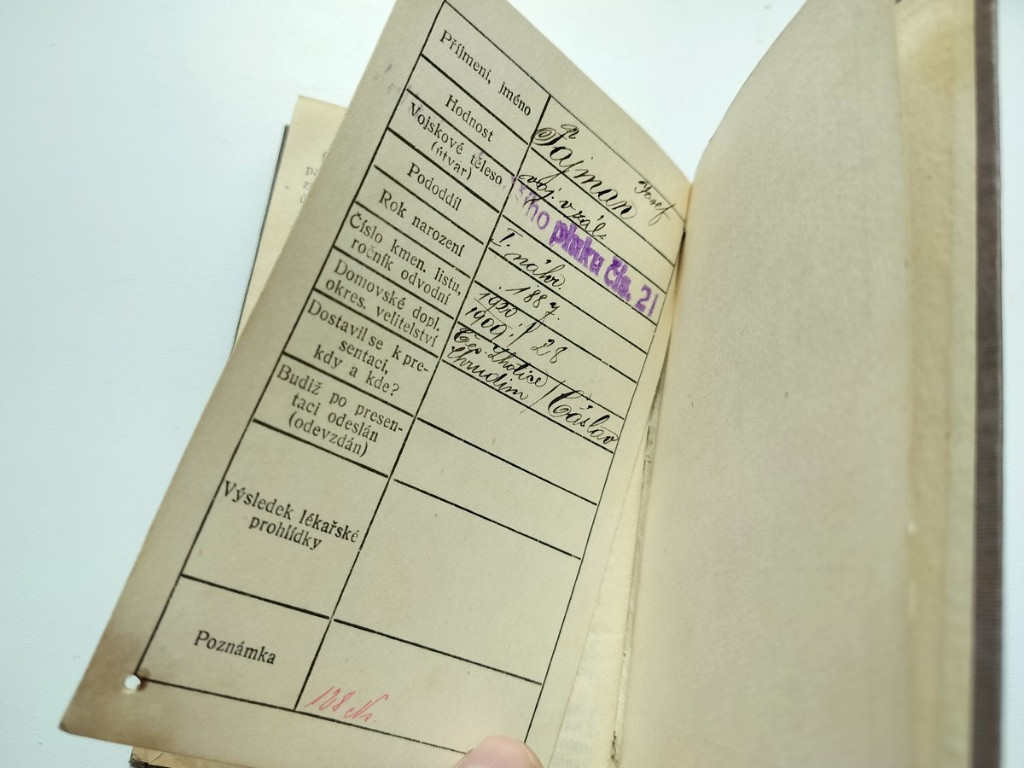 Příjmení, jméno
Pajman Josef
Hodnost
voj. vzál.
Vojskové těleso
(útvar)
pluku čís. 21
Pododdíl
I. náhr.
Rok narození
1887
Číslo kmen. listu,
ročník odvodní
1920/
1909/28
Domovské dopl.
okres. velitelství
Chrudim / Čáslav
Dostavil se k pre-
sentaci,
kdy a kde?
Budiž po presen-
taci odeslán
(odevzdán)
Výsledek lékařské
prohlídky
Poznámka